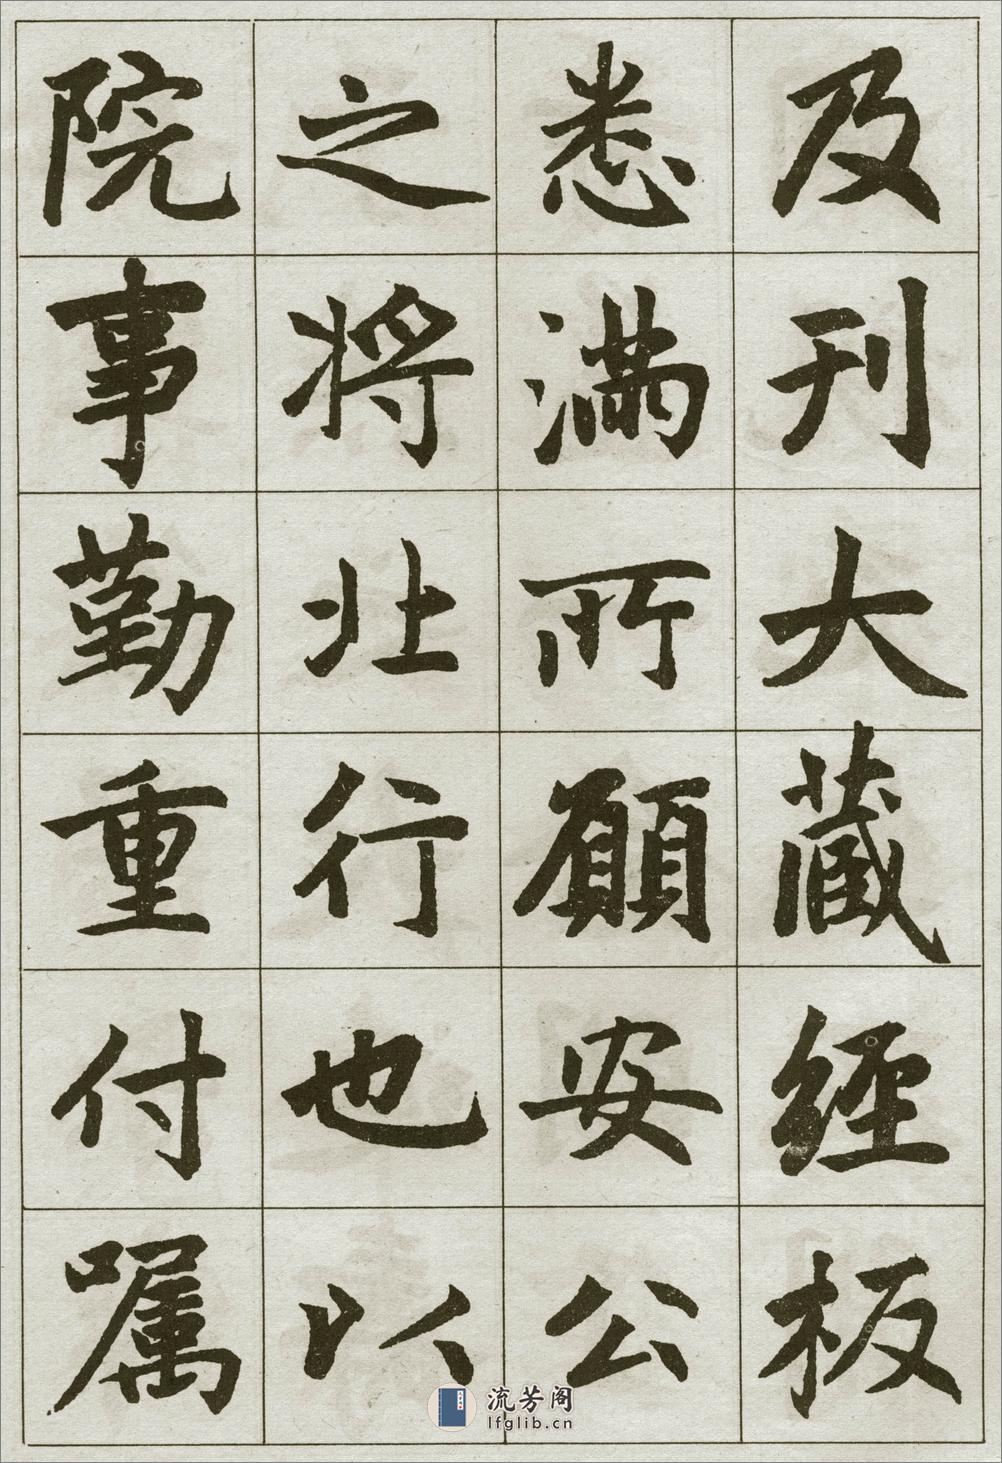 及刊大藏經板
悉滿所願安公
之将北行也以
院事勤重付嘱
流芳阁
lfglib.cn